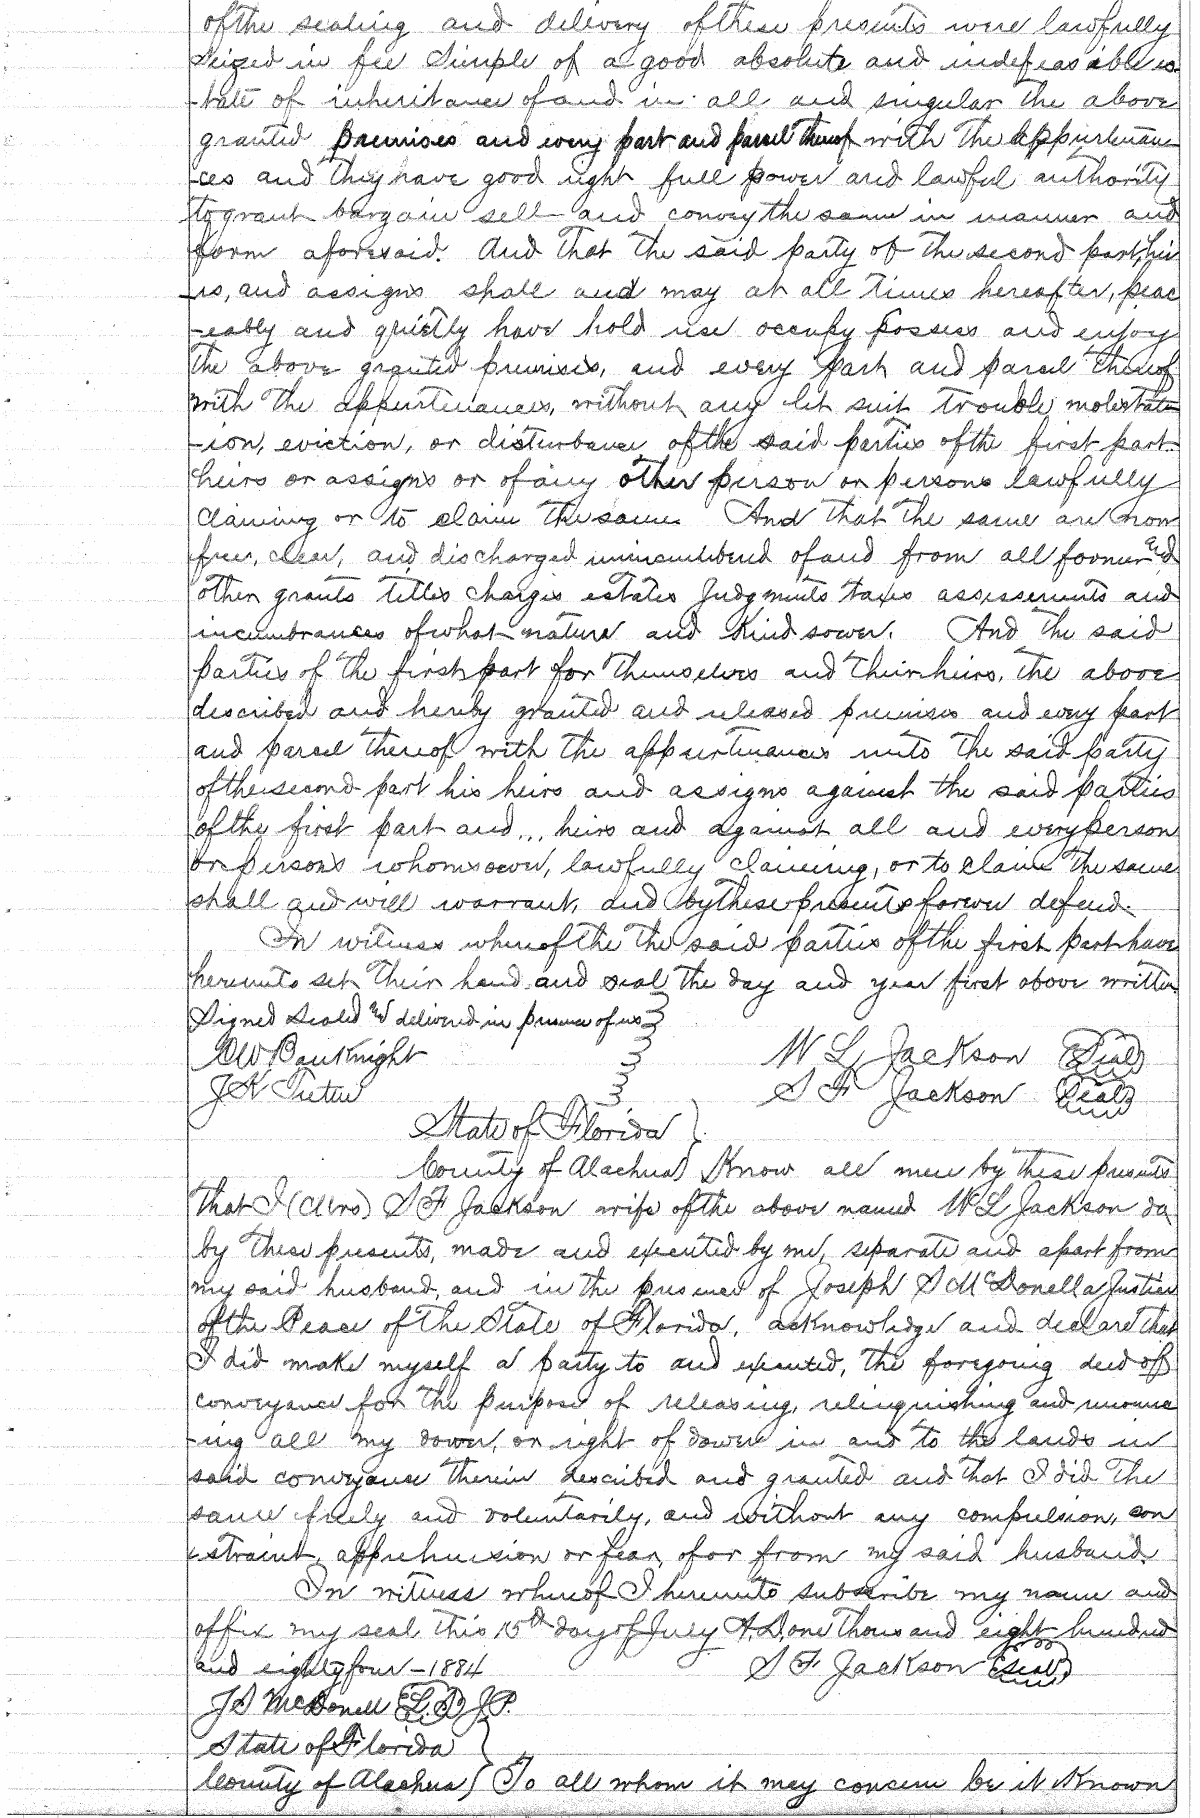 of the sealing and delivery of these presents were lawfully
seized in fee simple of a good absolute and indefeasible es
-tate of inheritance of and in all and singular the above
granted premises and every part and parcel thereof with the appurtenan
-ces and they have good right full power and lawful authority
to grant bargain sell and convey the same in manner and
form aforesaid. And that the said party of the second part, his
-rs, and assigns shall and may at all times hereafter, peac
-eably and quietly have hold use occupy possess and enjoy
the above granted premises, and every part and parcel thereof
with the appurtenances, without any let suit trouble molestat
-ion, eviction, or disturbance of the said parties of the first part
heirs or assigns or of any other person or persons lawfully
claiming or to claim the same. And that the same are now
free, clear, and discharged unincumbered of and from all former and
other grants titles charges estates Judgments taxes assessments and
incumbrances of what nature and kind soever. And the said
parties of the first part for themselves and their heirs, the above
described and hereby granted and released premises and every part
and parcel thereof with the appurtenances unto the said party
of the second part his heirs and assigns against the said parties
of the first part and... heirs and against all and every person
or persons whomsoever, lawfully claiming, or to claim the same
shall and will warrant, and by these presents forever defend.
In witness whereof the the said parties of the first part have
hereunto set their hand and seal the day and year first above written
Signed Sealed and delivered in presence of us
Bauknight W L Jackson (Seal)
J K S F Jackson (Seal)
State of Florida }
County of Alachua } Know all men by these presents
that I (Mrs) S F Jackson wife of the above named W L Jackson do
by these presents, made and executed by me, separate and apart from
my said husband, and in the presence of Joseph S McDonell a Justice
of the Peace of the State of Florida, acknowledge and declare that
I did make myself a party to and executed, the foregoing deed of
conveyance for the purpose of releasing, relinquishing and renounc
-ing all my dower, or right of dower in and to the lands in
said conveyance therein described and granted and that I did the
same freely and voluntarily, and without any compulsion, con
-straint, apprehension or fear, of or from my said husband.
In witness whereof I hereunto subscribe my name and
affix my seal this 15th day of July A.D. one thousand eight hundred
and eighty four - 1884 S F Jackson (Seal)
J S McDonell (L.S) J.P.
State of Florida }
County of Alachua } To all whom it may concern be it known